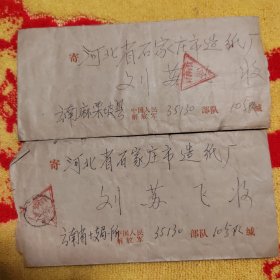 寄 河北省石家庄市造纸厂
刘苏 收
云南麻栗坡县 中国人民解放军 35130 部队 105 缄
寄 河北省石家庄市造纸厂
刘苏飞 收
云南省 中国人民解放军 35130 部队 105 缄